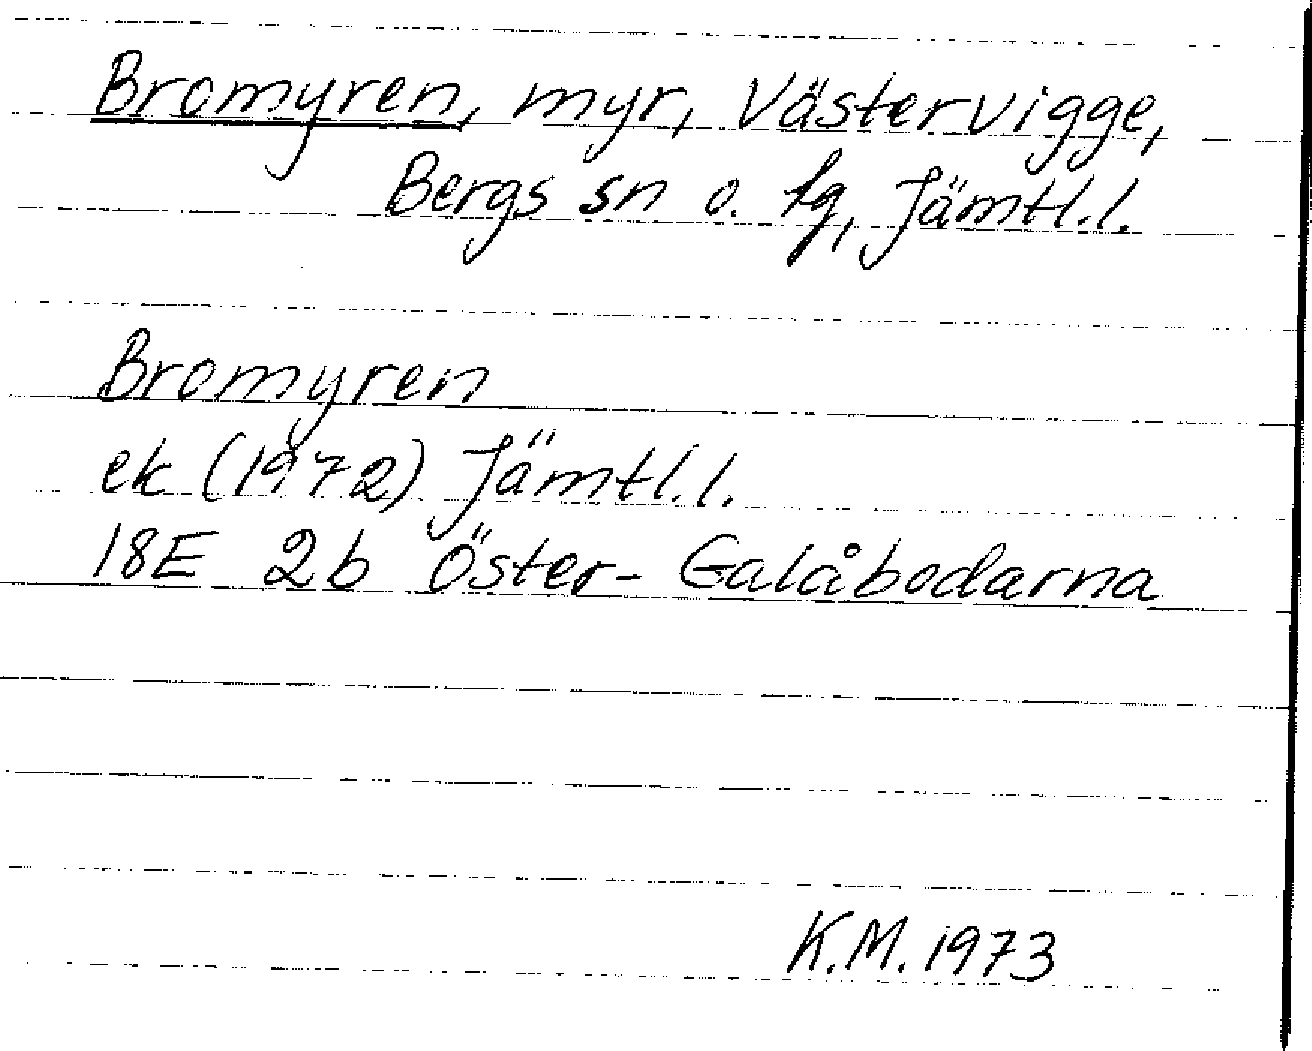 Bromyren, myr, Västervigge,
Bergs sn o. tg, Jämtl.l.
Bromyren
ek (1972) Jämtl.l.
18E 2b Öster-Galåbodarna
K.M. 1973